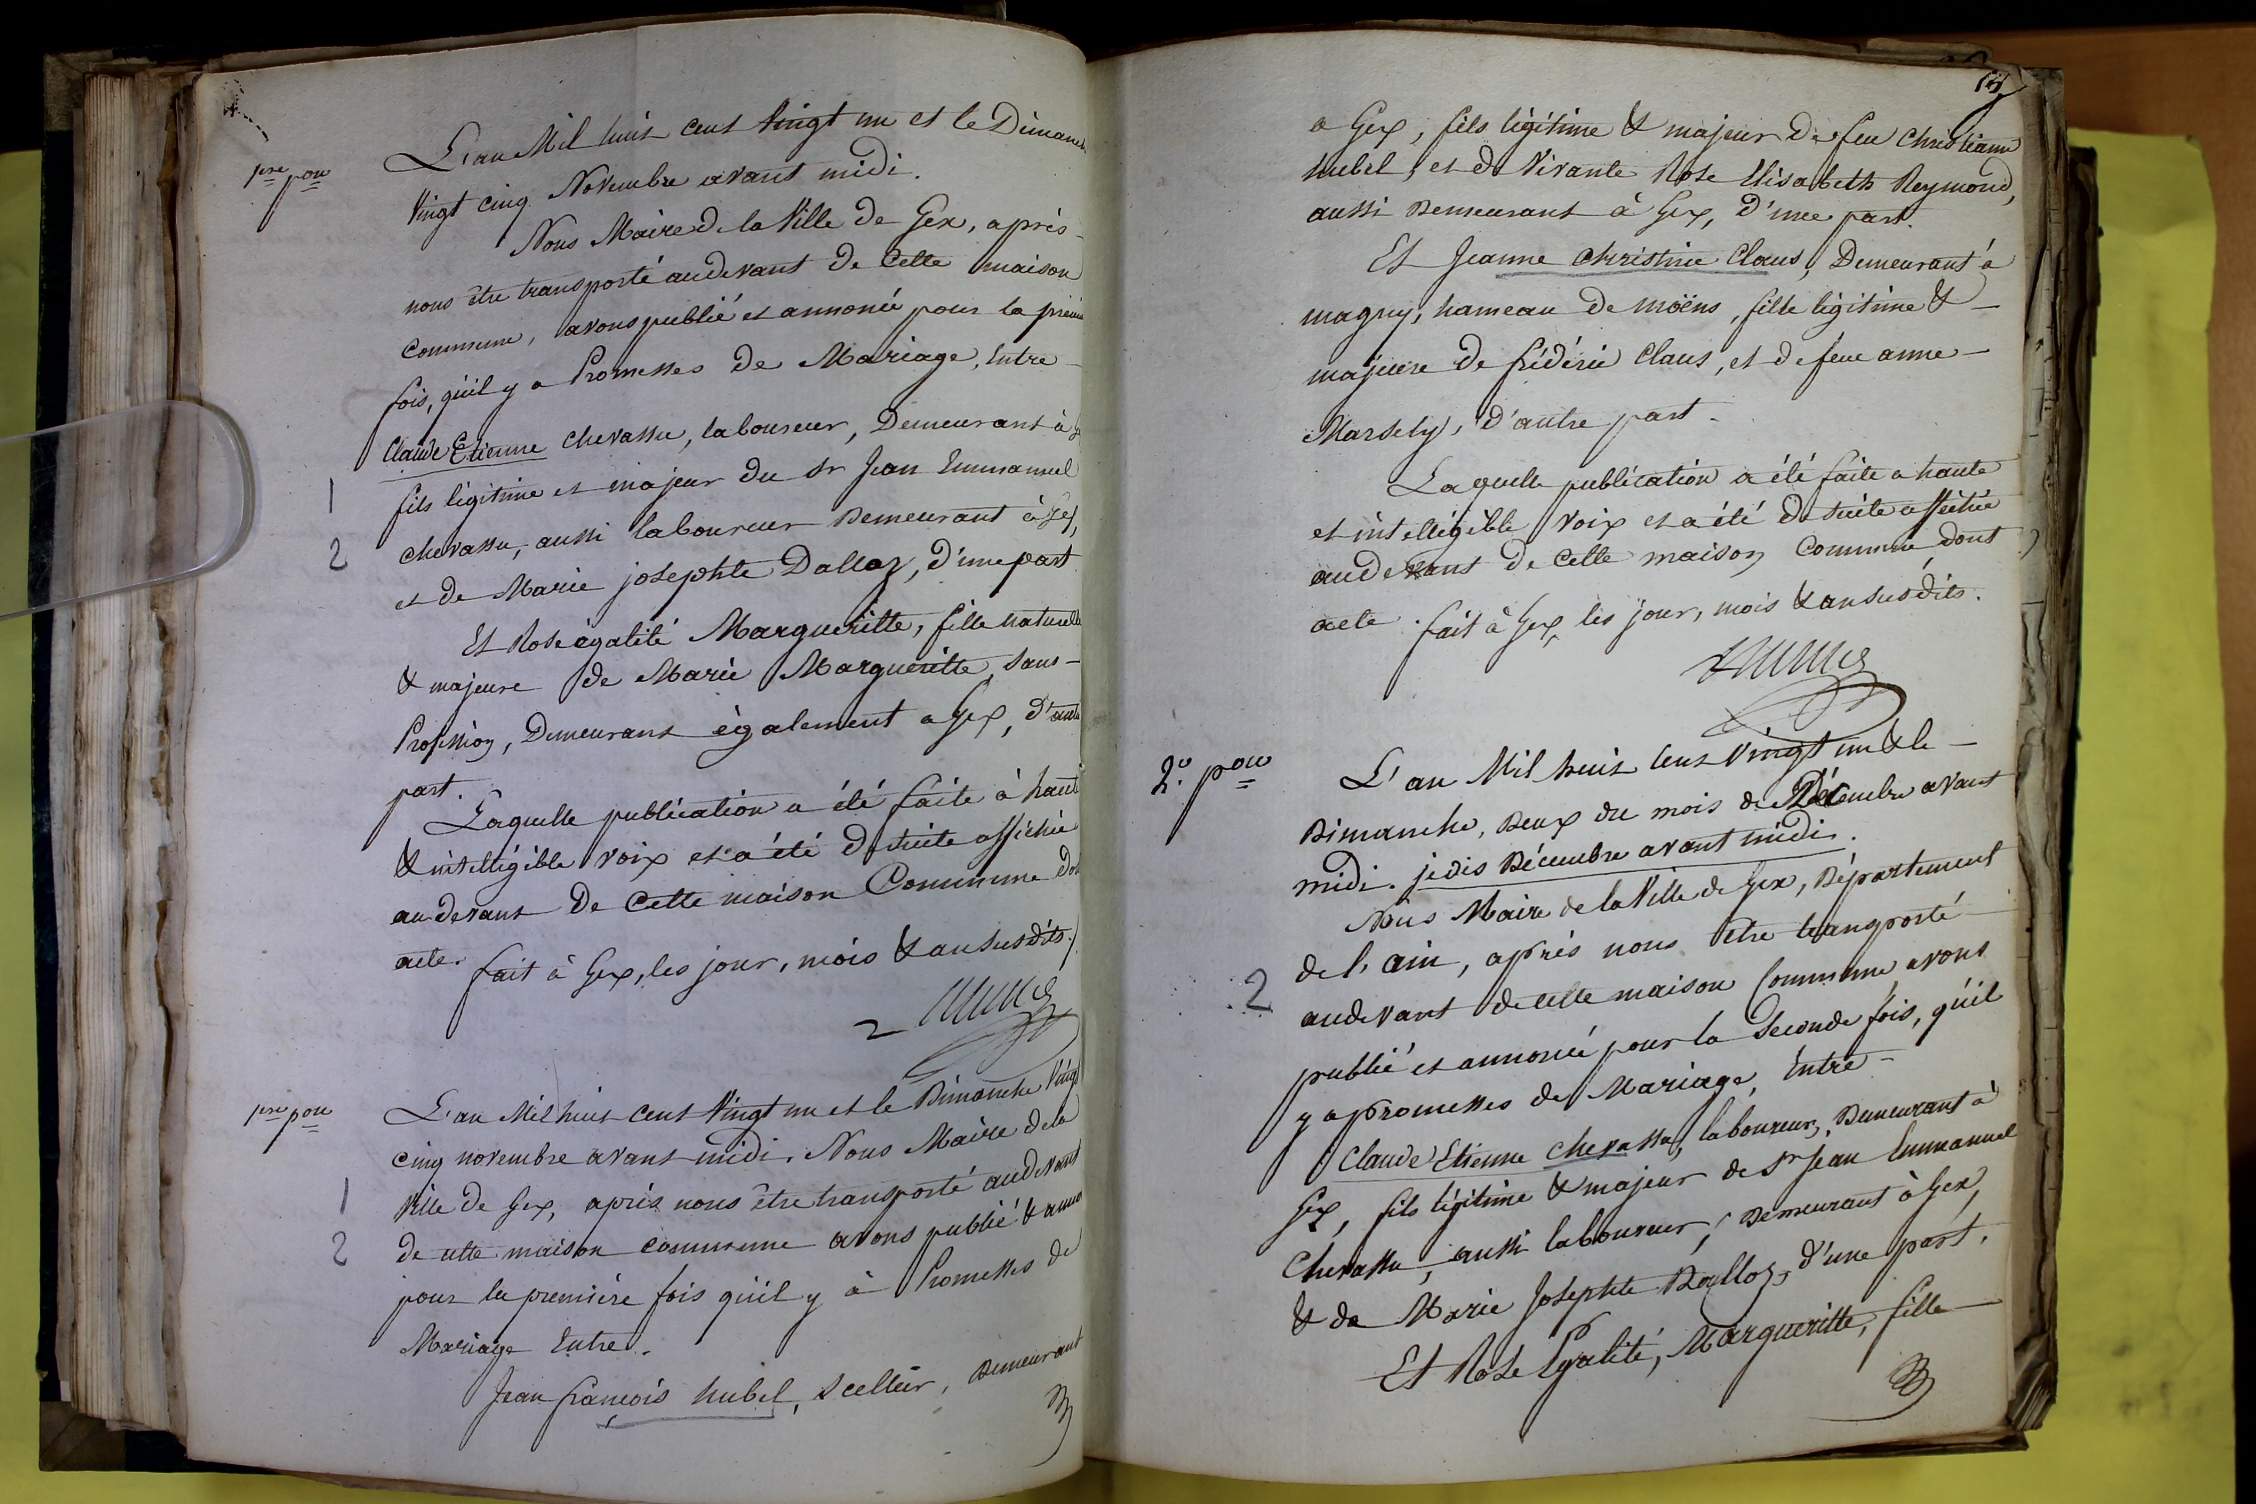 pre pon
L'an Mil huit cent Vingt un et le Dimanch
Vingt cinq Novembre avant midi.
Nous Maire de la Ville de Gex, après
nous être transporté audevant de Cette maison
Commune, avons publié et annoncé pour la premie
fois, qu'il y a Promesses de Mariage, Entre
Claude Etienne Chevassu, laboureur, Demeurant à
1
fils légitime et majeur du Sr Jean Emmanuel
chevassu, aussi laboureur Demeurant à Gex,
2
et de Marie josephte Dalloz, d'une part
Et Rose égalité Margueritte, fille naturelle
& majeure de Marie Margueritte, sans
Profession, Demeurant également a Gex, d'autre
part.
Laquelle publication a été faite à haute
& intelligible voix et a été de suite affichée
audevant De Cette maison Commune don
acte. fait à Gex, les jour, mois & an susdits.
pre pon
L'an Mil huit cent Vingt un et le Dimanche Vingt
cinq novembre avant midi. Nous Maire de la
1
Ville de Gex, après nous être transporté audevant
2
de cette maison commune avons publié & anno
pour la première fois qu'il y à Promesses de
Mariage Entre.
Jean françois hubel, Scellier, Demeurant
a Gex, fils légitime & majeur De feu Christianne
hubel, et de Vivante Rose Elisabeth Reymond,
aussi Demeurant à Gex, D'une part.
Et Jeanne Christine Claus, Demeurant à
magny, hameau de moëns, fille légitime &
majeure de frédéric Claus, et de feue anne
Marsely, D'autre part.
Laquelle publication a été faite a haute
et intelligible voix et a été de suite affichée
audevant De Cette maison Commune, dont
acte. fait à Gex, les jour, mois & an susdits.
2e pon
L'an Mil huit Cent Vingt un & le
Dimanche, Deux du mois de Décembre avant
midi. je dis Décembre avant midi.
Nous Maire de la Ville de Gex, Département
de l'ain, après nous être transporté
2
audevant de cette maison Commune, avons
publié et annoncé pour la Seconde fois, qu'il
y a promesses de Mariage, Entre
Claude Etienne Chevassu, laboureur, Demeurant à
Gex, fils légitime & majeur de Sr Jean Emmanuel
Chevassu, aussi laboureur, Demeurant à Gex,
& de Marie Josephte Dalloz, d'une part.
Et Rose Egalité, Margueritte, fille